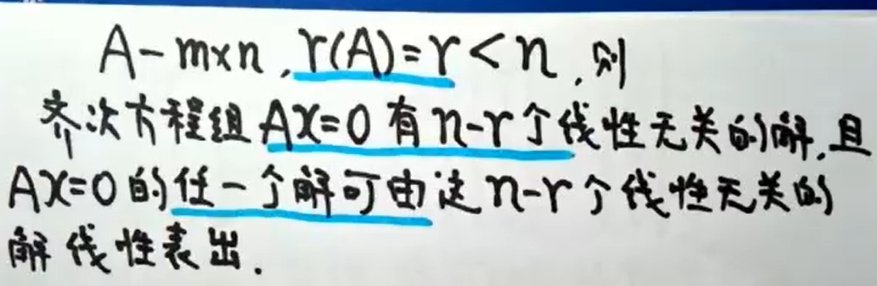 A-m×n,r(A)=r<n,则
齐次方程组AX=0有n-r个线性无关的解,且
AX=0的任一个解可由这n-r个线性无关的
解线性表出.